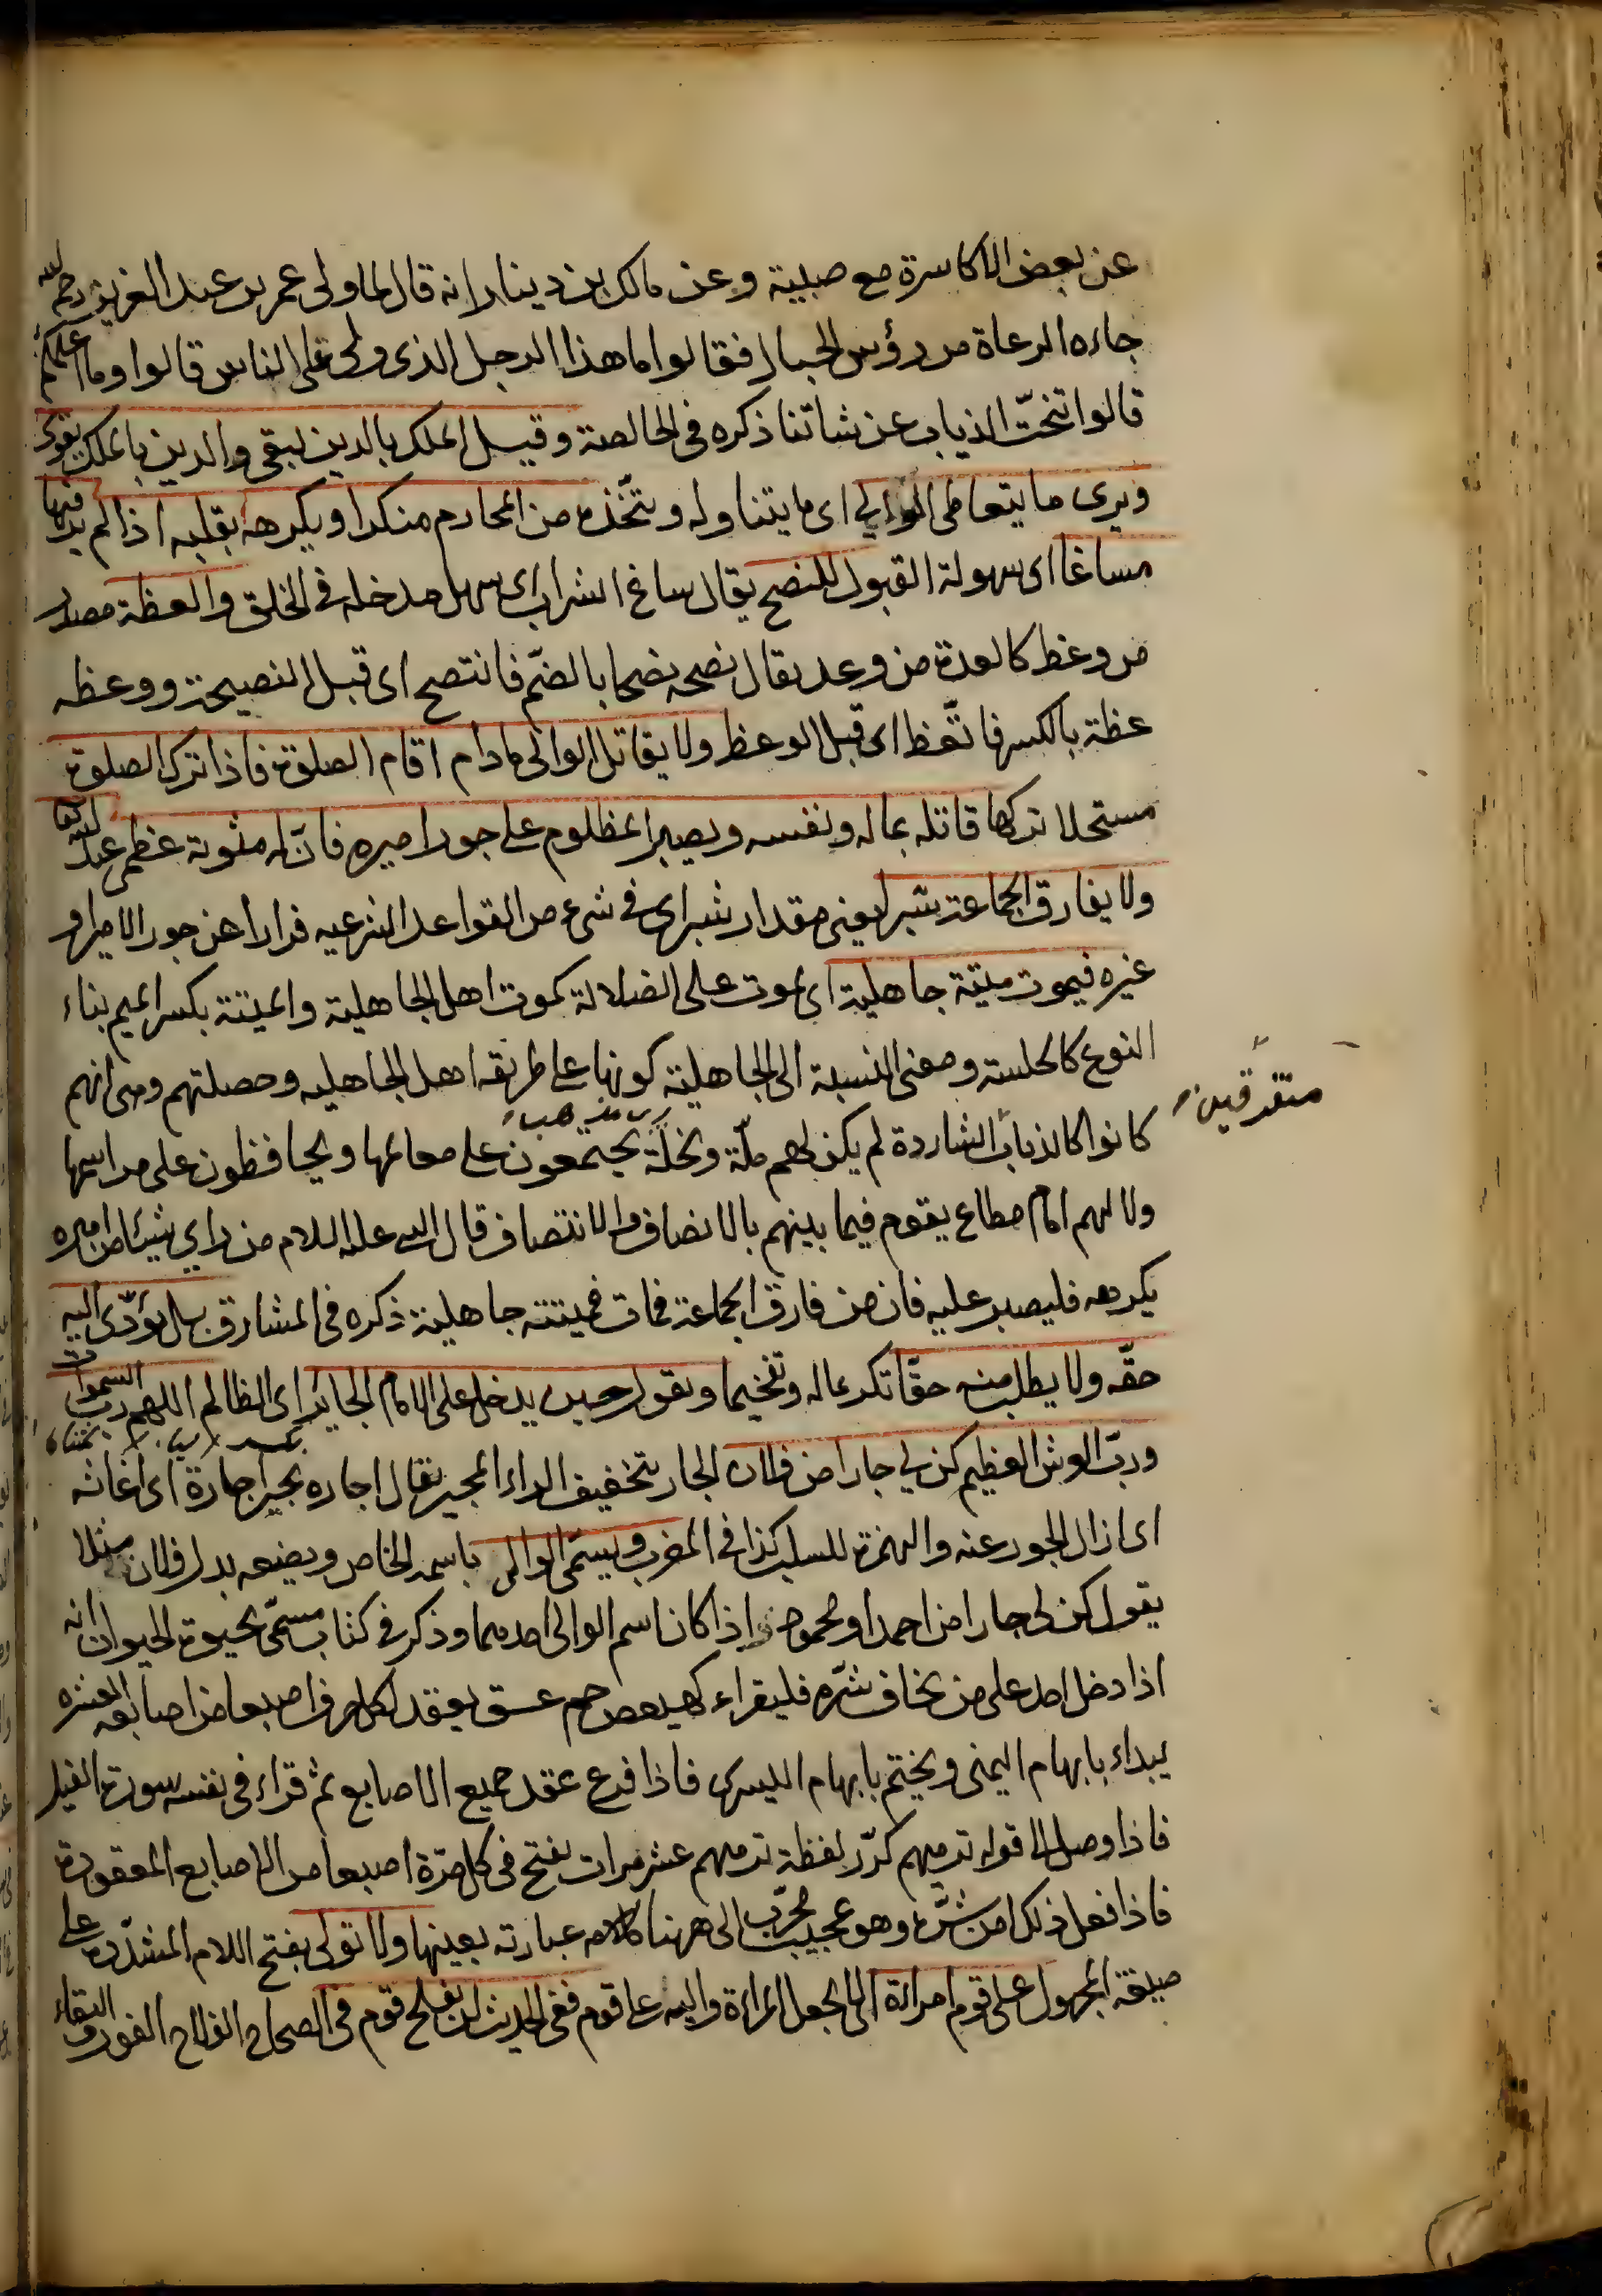 عن بعض الاكاسرة مع صبية وعن مالك بن دينار انه قال لما ولى عمر بن عبد العزيز رحمه الله
جاءه الرعاة من رؤس الجبال فقالوا ما هذا الرجل الذى ولى على الناس قالوا وما اعلمكم
قالوا تنحت الذياب عن شاتنا ذكره فى الخالصة وقيل الملك بالدين يبقى والدين بالملك يقوى
ويرى ما يتعاطى الوالى اى ما يتناوله ويتخذه من المحارم منكرا ويكرهه بقلبه اذا لم ير فيها
مساغا اى سهولة القبول للنصح يقال ساغ الشراب اى سهل مدخله فى الحلق والعظة مصدر
من وعظ كالعدة من وعد يقال نصحه نصحا بالضّم فانتصح اى قبل النصيحة ووعظه
عظة بالكسر فاتّعظ اى قبل الوعظ ولا يقاتل الوالى مادام اقام الصلوة فاذا ترك الصلوة
مستحلا تركها قاتله بماله ونفسه ويصبر المظلوم على جور اميره فانّ له مثوبة عظمى عند الله تعا
ولا يفارق الجماعة شبرا يعنى مقدار شبر اى فى شىء من القواعد الشرعيه فرارا من جور الامير او
غيره فيموت ميتة جاهلية اى يموت على الضلالة كموت اهل الجاهلية والميتة بكسر الميم بناء
النوع كالجلسة ومعنى النسبة الى الجاهلية كونها على طريقه اهل الجاهليه وخصلتهم وهى انهم
متفرقين
كانوا كالذياب الشاردة لم يكن لهم ملّة ونحلة يجتمعون على معالمها ويحافظون على مراسمها
ولا لهم امام مطاع يقوم فيما بينهم بالانصاف والانتصاف قال النبى عليه السلام من راى شيئا من اميره
يكرهه فليصبر عليه فان من فارق الجماعة فمات فميتته جاهلية ذكره فى المشارق بل يؤدّى اليه
حقّه ولا يطلب منه حقّا تكرما له وتفخيما ويقول حين يدخل على الامام الجائر اى الظالم اللهم ربّ السموات
وربّ العرش العظيم كن لى جارا من فلان الجار بتخفيف الراء المجير يقال اجاره يجير اجارة اى اغاثه
اى ازال الجور عنه والهمزة للسلب كذا فى المغرب ويسمّى الوالى باسمه الخاص ويضعه بدل فلان مثلا
يقول كن لى جارا من احمد او محمود اذا كان اسم الوالى احدهما وذكر فى كتاب مسمّى بحيوة الحيوان انه
اذا دخل احد على من يخاف شرّه فليقراء كهيعص حم عسق يعقد لكل حرف اصبعا من اصابعه العشره
يبداء بابهام اليمنى ويختم بابهام اليسرى فاذا فرغ عقد جميع الاصابع ثم قراء فى نفسه سورة الفيل
فاذا وصل الى قوله ترميهم كرّر لفظة ترميهم عشر مرات يفتح فى كل مرّة اصبعا من الاصابع المعقودة
فاذا فعل ذلك امن شرّه وهو عجيب مجرّب الى ههنا كلامه عبارته بعينها ولا تولى بفتح اللام المشدّدة على
صيغة المجهول على قوم امراة اى لا يجعل المراءة والية على قوم ففى الحديث لن يفلح قوم فى الصحاح الفلاح الفوز والبقاء